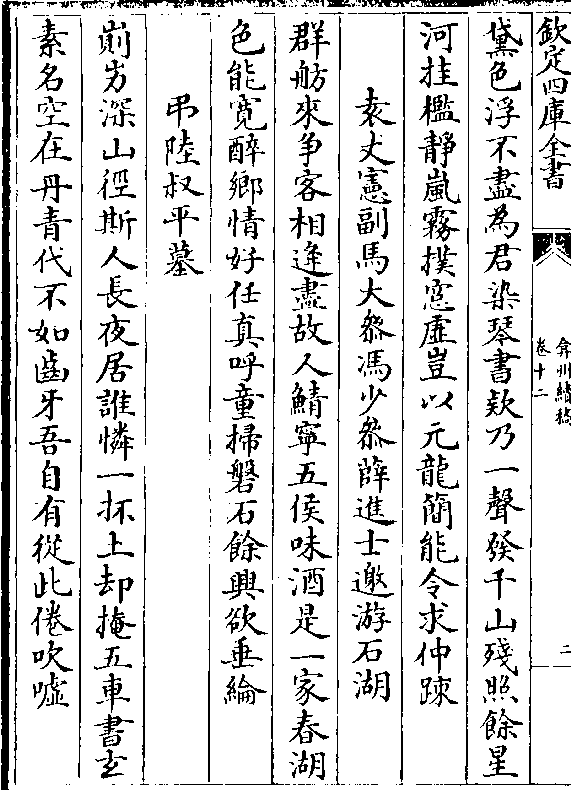 欽定四庫全書
弇州續稿
卷十二
二
黛色浮不盡為君染琴書欵乃一聲發千山殘照餘星
河挂檻靜嵐霧撲窓虛豈以元龍簡能令求仲踈
袁丈憲副馬大叅馮少叅薛進士邀游石湖
群舫來争客相逢盡故人鯖寧五侯味酒是一家春湖
色能寛醉鄉情好任真呼童掃磐石餘興欲垂綸
弔陸叔平墓
崱屴深山徑斯人長夜居誰憐一抔土却掩五車書玄
素名空在丹青代不如齒牙吾自有從此倦吹噓